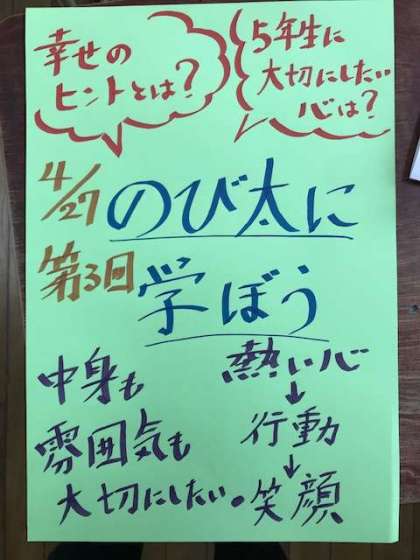 幸せの
ヒントとは?
5年生に
大切にしたい
心は?
4/27
第3回
のび太に
学ぼう
中身も
雰囲気も
大切にしたい。
熱い心
↓
行動
↓
笑顔